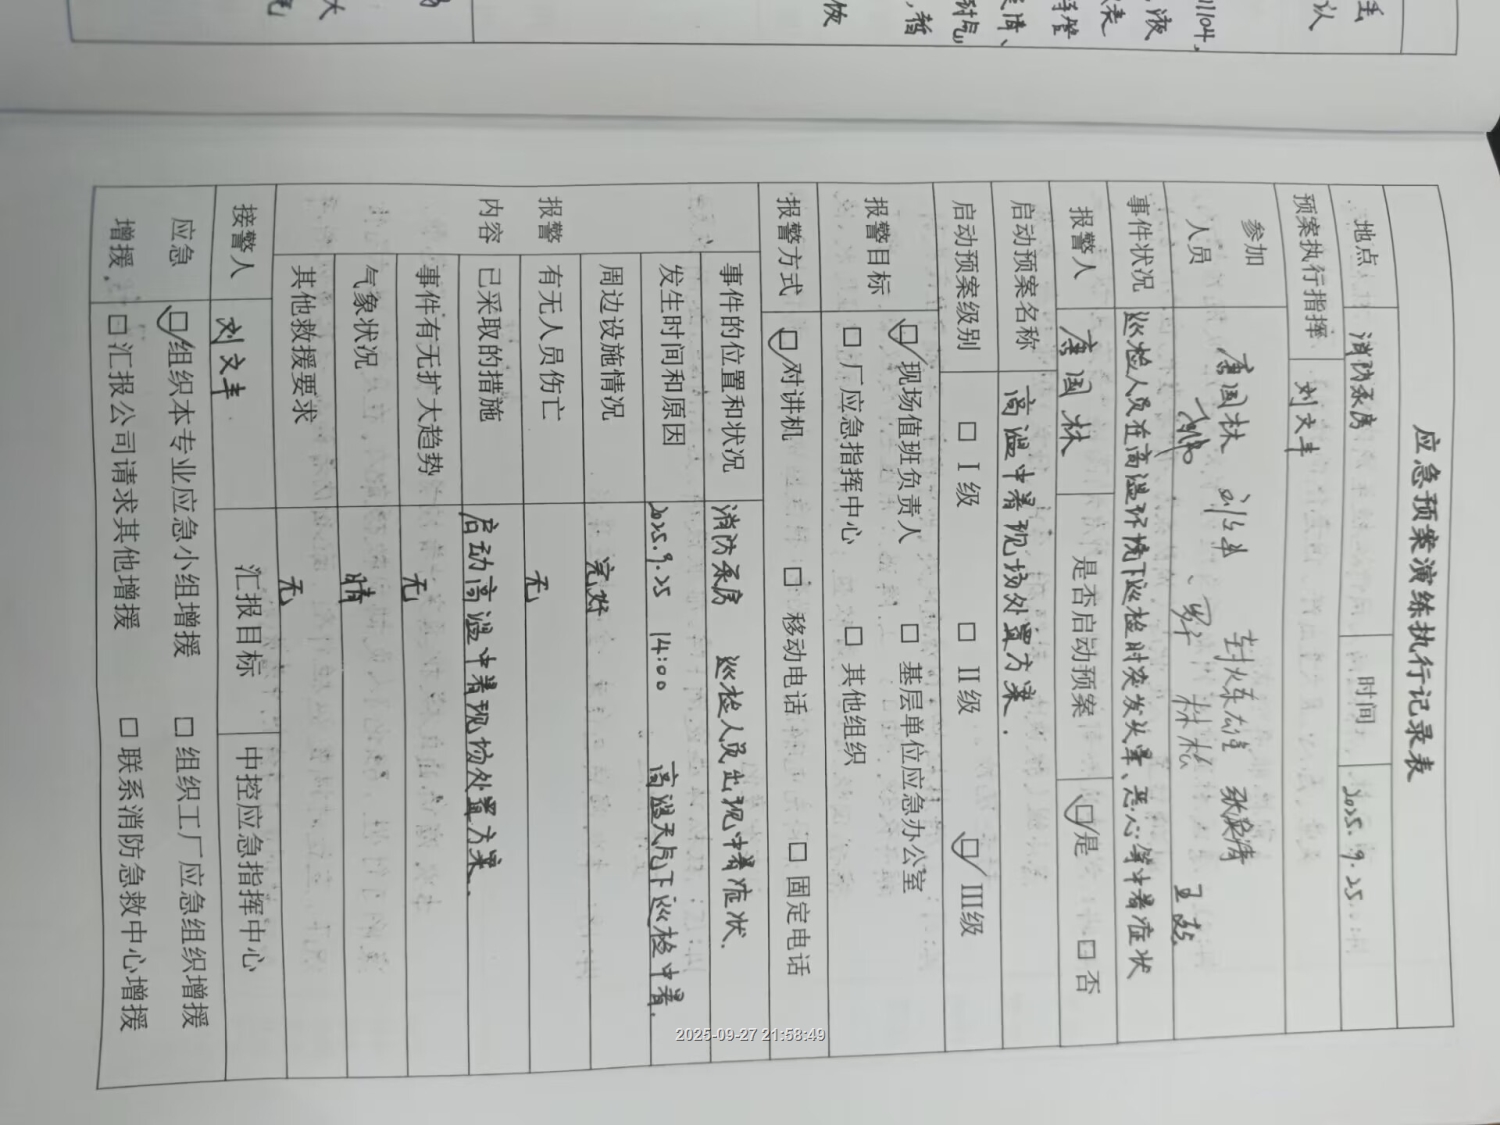 应急预案演练执行记录表
地点 消防泵房 时间 2025.9.25
预案执行指挥 刘文丰
参加人员 唐国林 刘文丰 封火东雄 张泉清
林松
事件状况 巡检人员在高温环境下巡检时突发头晕、恶心等中暑症状
报警人 唐国林 是否启动预案 ☑是 □否
启动预案名称 高温中暑现场处置方案.
启动预案级别 □ I 级 □ II 级 ☑ III级
报警目标 ☑现场值班负责人 □ 基层单位应急办公室
□ 厂应急指挥中心 □ 其他组织
报警方式 ☑对讲机 □ 移动电话 □ 固定电话
报警内容
事件的位置和状况 消防泵房 巡检人员出现中暑症状.
发生时间和原因 2025.9.25 14:00 高温天气下巡检中暑.
周边设施情况 完好
有无人员伤亡 无
已采取的措施 启动高温中暑现场处置方案.
事件有无扩大趋势 无
气象状况 晴
其他救援要求 无
接警人 刘文丰 汇报目标 中控应急指挥中心
应急增援 ☑组织本专业应急小组增援 □ 组织工厂应急组织增援
□汇报公司请求其他增援 □ 联系消防急救中心增援
2025-09-27 21:58:49